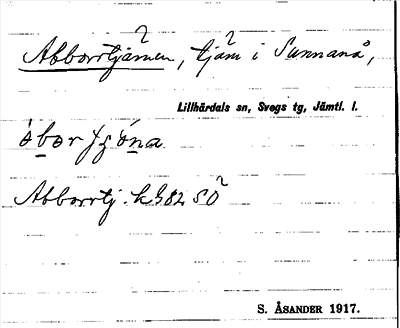 Abborrtjärnen, tjärn i Sunnanå,
Lillhärdals sn, Svegs tg, Jämtl. l.
Abborrtj. k G 82 SO
S. ÅSANDER 1917.